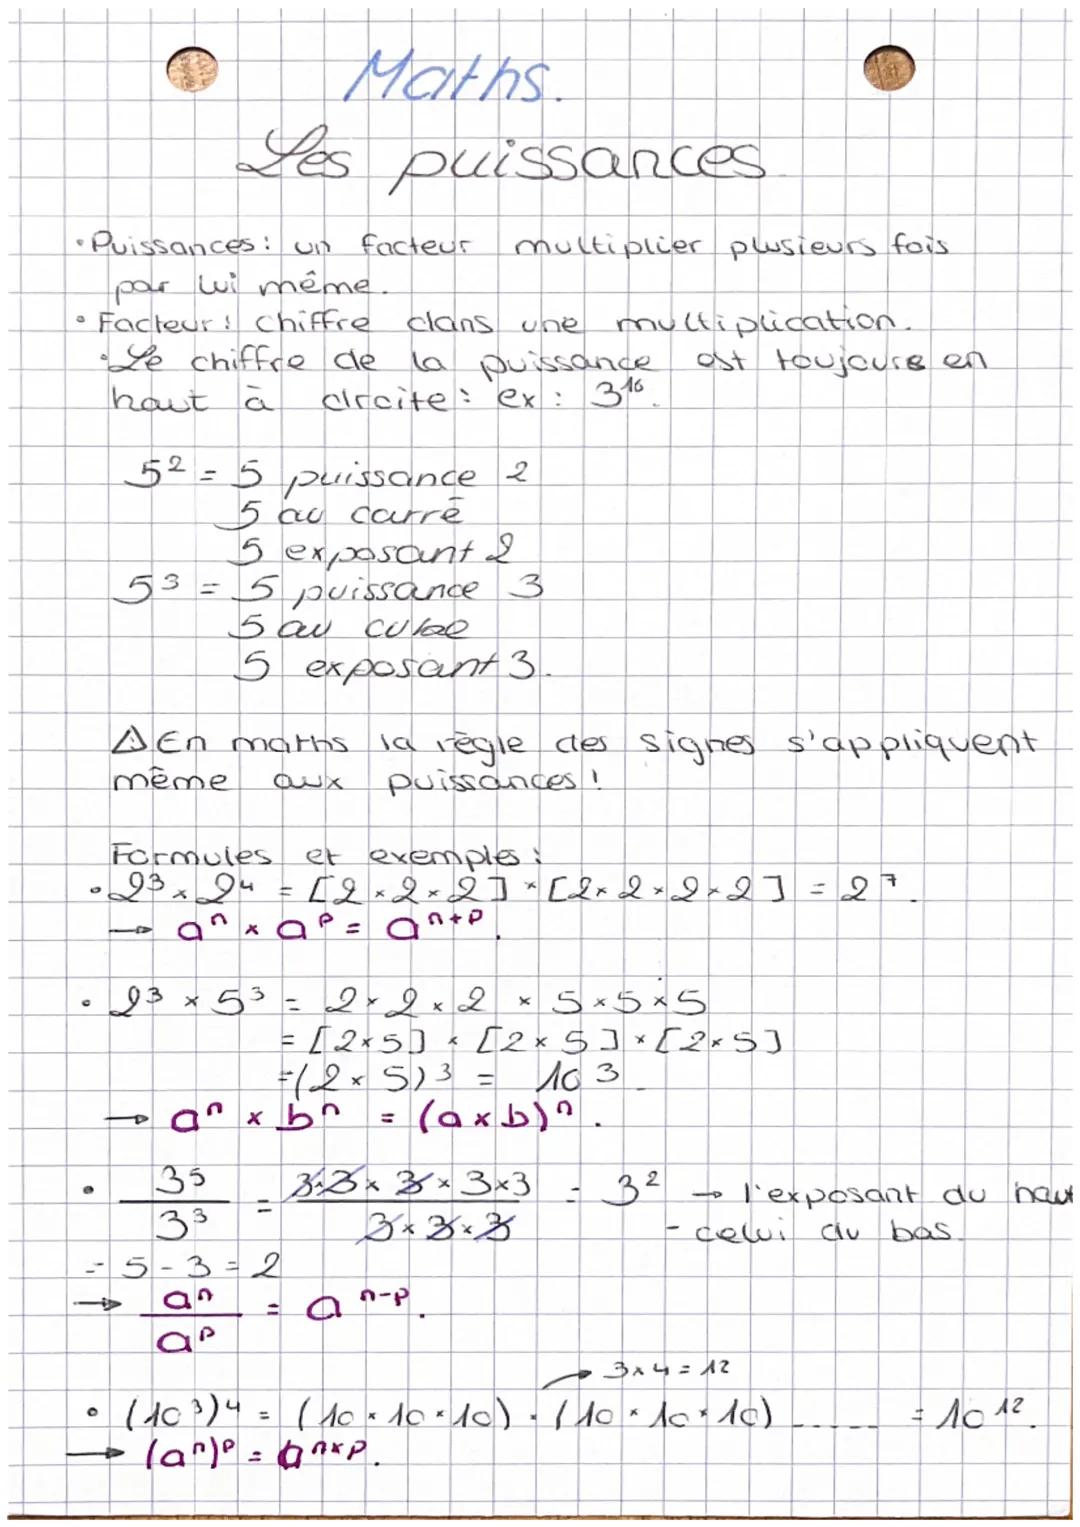 Maths.
Les puissances
• Puissances : un facteur multiplier plusieurs fois
par lui même.
• Facteur : chiffre dans une multiplication.
• Le chiffre de la puissance est toujours en
haut à droite : ex : 3¹⁶.
5² = 5 puissance 2
5 au carré
5 exposant 2
5³ = 5 puissance 3
5 au cube
5 exposant 3.
⚠ En maths la règle des signes s'appliquent
même aux puissances !
Formules et exemples :
• 2³ × 2⁴ = [2 × 2 × 2] × [2 × 2 × 2 × 2] = 2⁷.
→ aⁿ × aᵖ = aⁿ⁺ᵖ.
• 2³ × 5³ = 2 × 2 × 2 × 5 × 5 × 5
= [2×5] × [2×5] × [2×5]
= (2 × 5)³ = 10³.
→ aⁿ × bⁿ = (a×b)ⁿ.
• 3⁵/3³ = 3×3×3×3×3/3×3×3 = 3² → l'exposant du haut
- celui du bas.
= 5 - 3 = 2
→ aⁿ/aᵖ = aⁿ⁻ᵖ.
→ 3×4 = 12
• (10³)⁴ = (10 × 10 × 10) × (10 × 10 × 10) ..... = 10¹².
→ (aⁿ)ᵖ = aⁿˣᵖ.